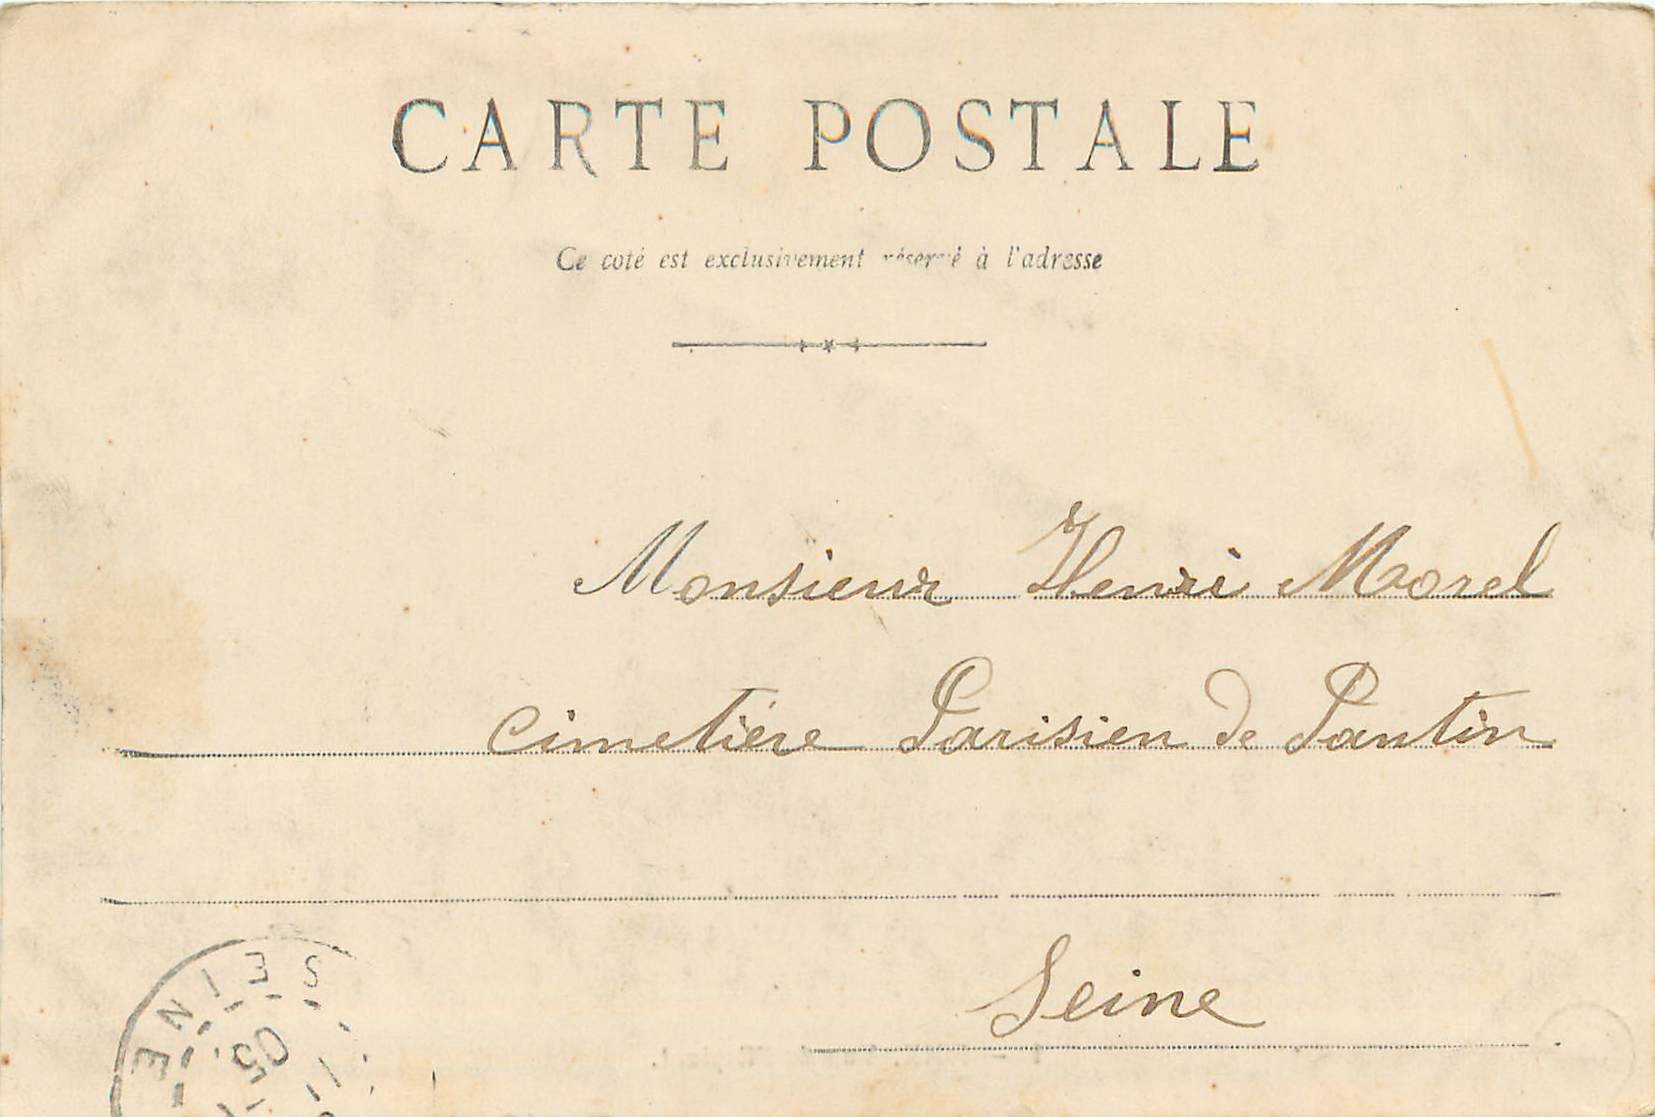 CARTE POSTALE
Ce coté est exclusivement réservé à l'adresse
Monsieur Henri Morel
cimetière Parisien de Pantin
Seine
SEINE
05